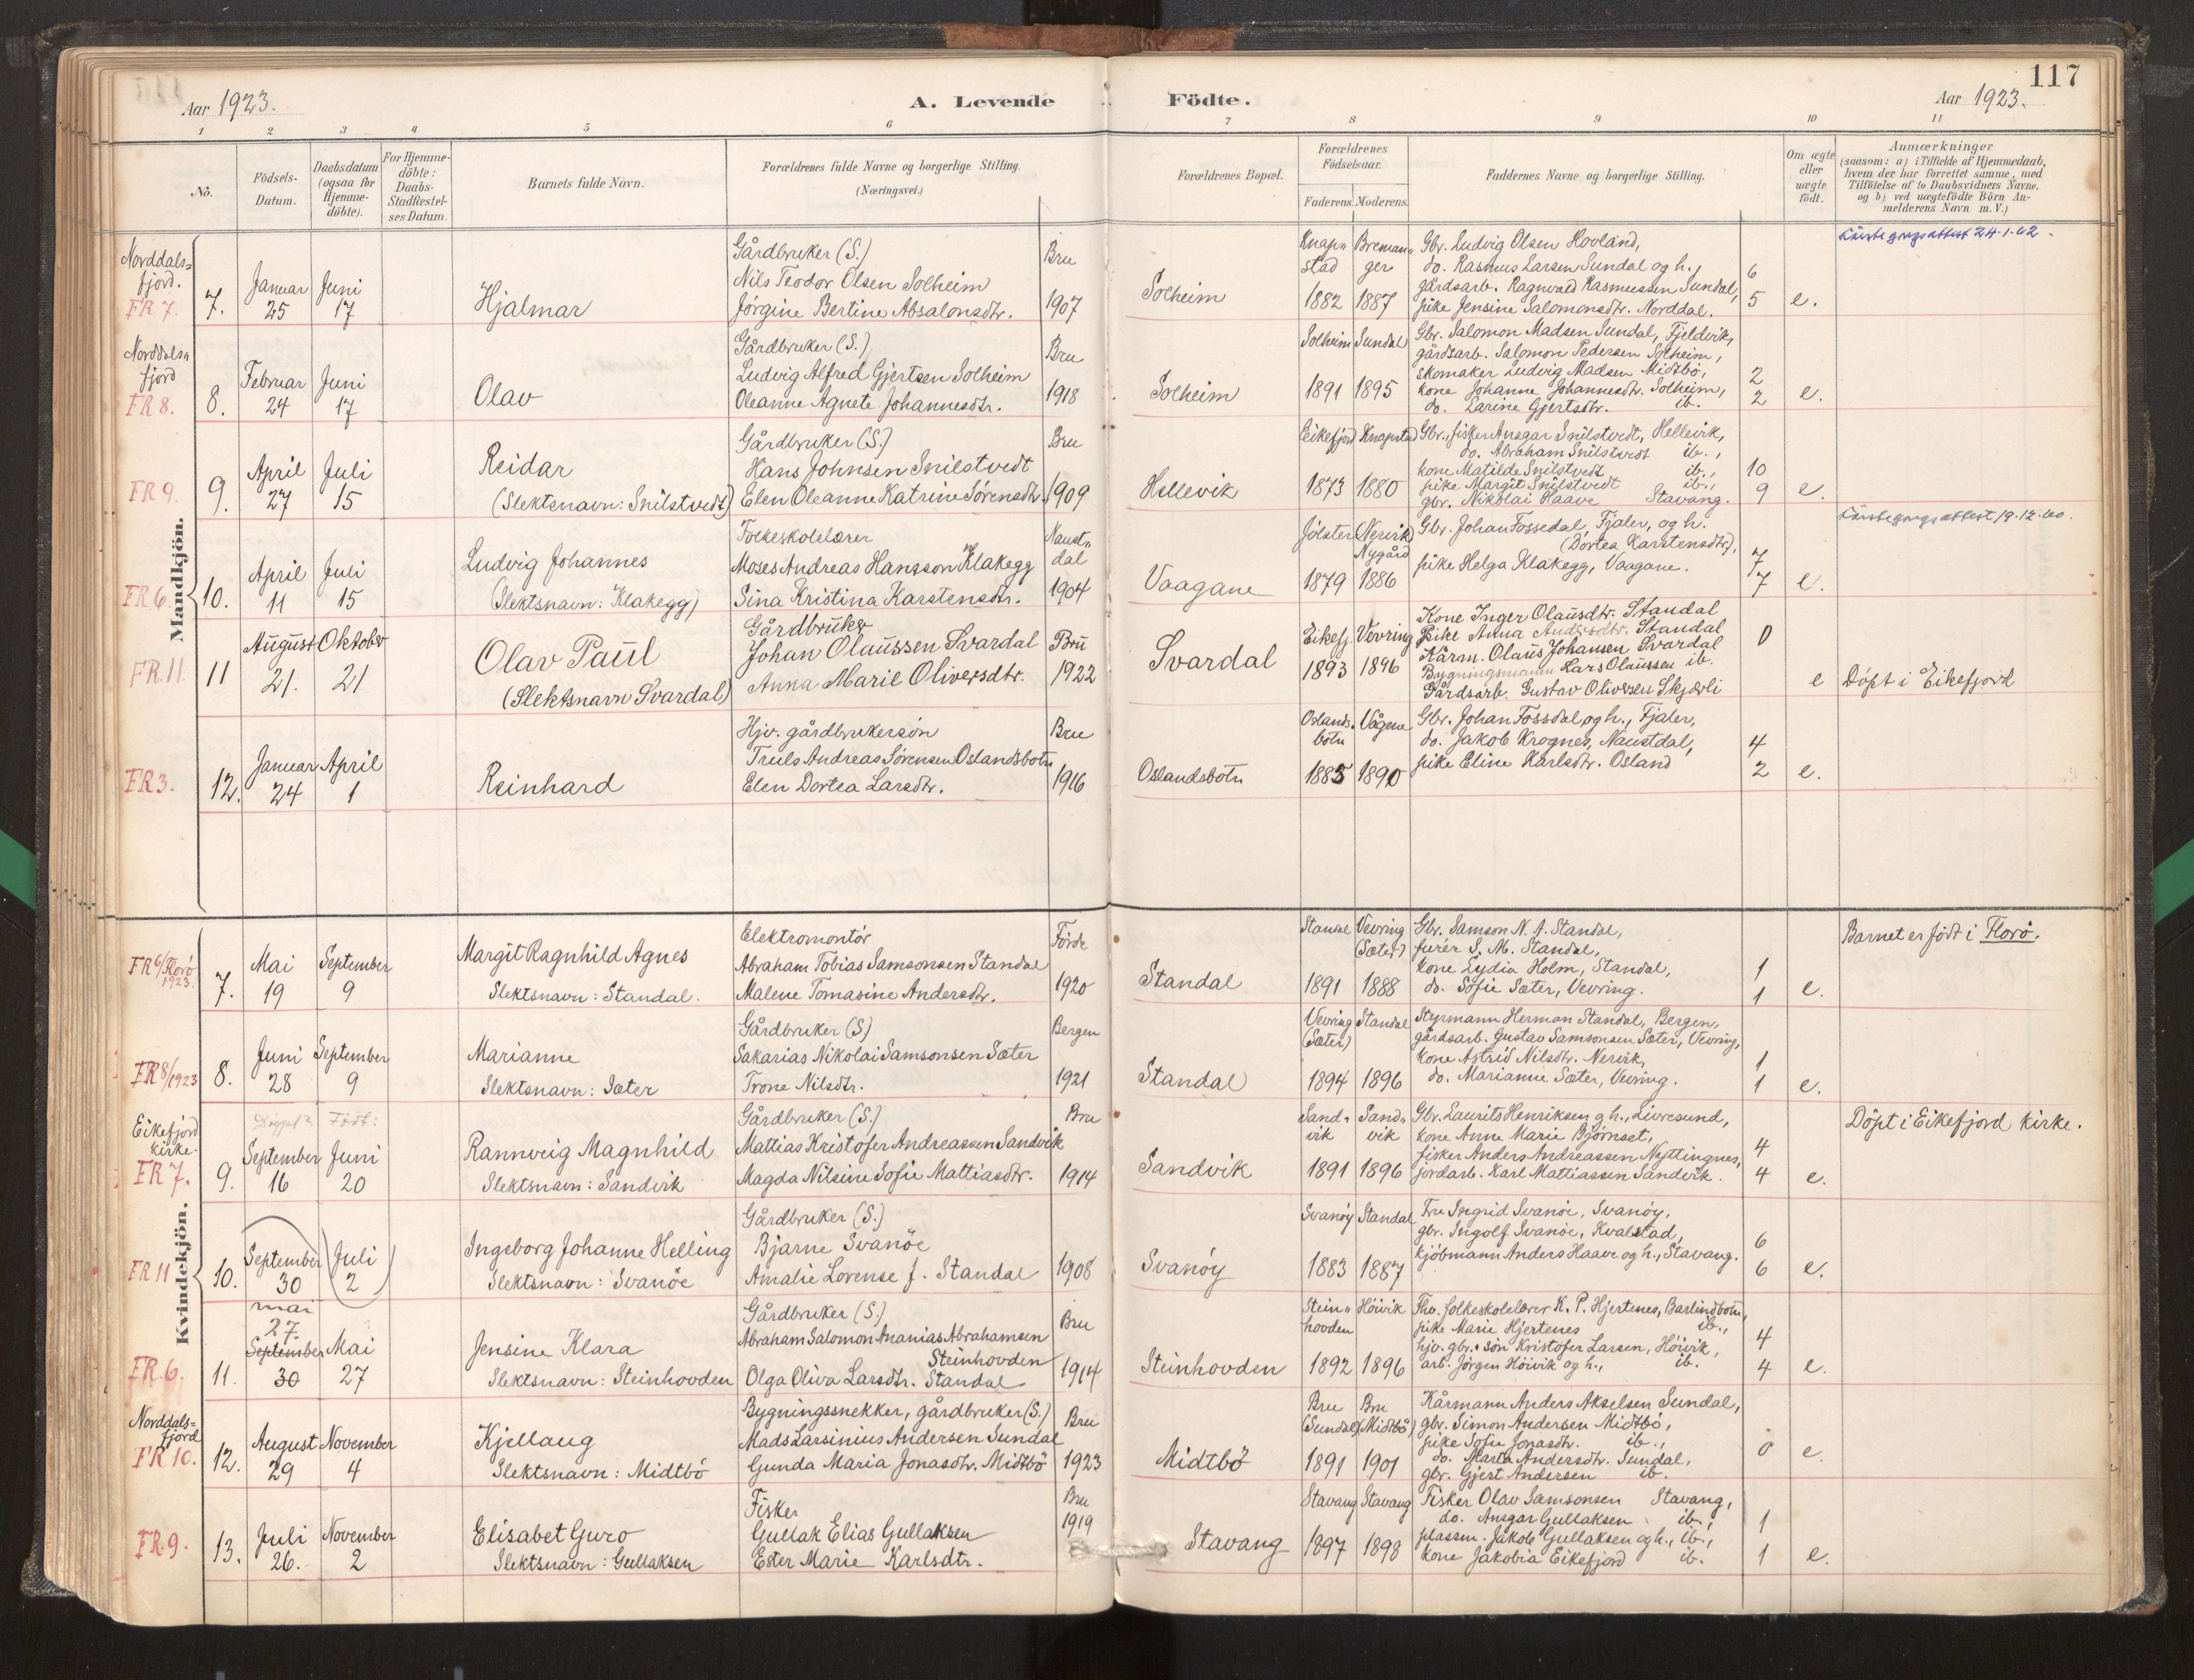 117
Aar 1923.
A. Levende Födte.
Aar 1923.
1 2 3 4 5 6 7 8 9 10 11
No.
Födsels-Datum.
Daabsdatum (ogsaa for Hjemme-döbte).
For Hjemme-döbte: Daabs-Stadfæstel-ses Datum.
Barnets fulde Navn.
Forældrenes fulde Navne og borgerlige Stilling.
(Næringsvei.)
Forældrenes Bopæl.
Forældrenes Födselsaar.
Faderens. Moderens.
Faddernes Navne og borgerlige Stilling.
Om ægte eller uægte født.
Anmærkninger
(saasom: a) i Tilfælde af Hjemmedaab,
hvem der har forrettet samme, med
Tilføielse af to Daabsvidners Navne.
og b) ved uægtefödte Börn An-
melderens Navn m. V.)
Mandkjön.
Norddals=
fjord.
FR 7.
7.
Januar
25
Juni
17
Hjalmar
Gårdbruker (S.)
Nils Teodor Olsen Solheim
Jørgine Bertine Absalonsdtr.
Bru
1907
Solheim
Knap"
stad
1882
Breman"
ger
1887
Gbr. Ludvig Olsen Hovland,
do. Rasmus Larsen Sundal og h.,
gårdsarb. Ragnvald Rasmussen Sundal,
pike Jensine Salomonsdtr. Norddal.
6
5
e.
24-1-62.
Norddals"
fjord
FR 8.
8.
Februar
24
Juni
17
Olav
Gårdbruker (S.)
Ludvig Alfred Gjertsen Solheim
Oleanne Agnete Johannesdtr.
Bru
1918
Solheim
Solheim
1891
Sundal
1895
Gbr. Salomon Madsen Sundal, Fjeldvik,
gårdsarb. Salomon Pedersen Solheim,
skomaker Ludvig Madsen Midtbö,
kone Johanne Johannesdtr. Solheim,
do. Larine Gjertsdtr. ib.
2
2
e.
FR 9.
9.
April
27
Juli
15
Reidar
(Slektsnavn: Snilstvedt)
Gårdbruker (S.)
Hans Johnsen Snilstvedt
Elen Oleanne Katrine Sørensdtr.
Bru
1909
Hellevik
Eikefjord
1873
Knapstad
1880
Gbr., fisker Ansgar Snilstvedt, Hellevik,
do. Abraham Snilstvedt ib.,
kone Matilde Snilstvedt ib.,
pike Margit Snilstvedt ib.,
gbr. Nikolai Haave Stavang.
10
9
e.
FR 6.
10.
April
11
Juli
15
Ludvig Johannes
(Slektsnavn: Klakegg)
Folkeskolelærer
Moses Andreas Hansson Klakegg
Sina Kristina Karstensdtr.
Naust"
dal
1904
Vaagane
Jölster
1879
(Nervik)
Nygård
1886
Gbr. Johan Fossedal, Fjaler, og h.
(Dortea Karstensdtr),
pike Helga Klakegg, Vaagane.
7
7
e.
19-12-60.
FR. 11.
11
August
21.
Oktober
21
Olav Paul
(Slektsnavn Svardal)
Gårdbruker
Johan Olaussen Svardal
Anna Marie Oliversdtr.
Bru
1922
Svardal
Eikefj.
1893
Vevring
1896
Kone Inger Olausdtr. Standal
Pike Anna Andersdtr. Standal
Kårm. Olaus Johansen Svardal
Bygningsmann Lars Olaussen ib.
Gårdsarb. Gustav Oliversen Skjerli
0
e
Döpt i Eikefjord
FR 3.
12.
Januar
24
April
1
Reinhard
Hjv. gårdbrukersön
Truls Andreas Sörensen Oslandsbotn
Elen Dortea Larsdtr.
Bru
1916
Oslandsbotn
Oslands.
botn
1885
Vågene
1890
Gbr. Johan Fossdal og h., Fjaler,
do. Jakob Krognes, Naustdal,
pike Eline Karlsdtr. Osland
4
2
e.
Kvindekjön.
FR 6/Florö
1923.
7.
Mai
19
September
9
Margit Ragnhild Agnes
Slektsnavn: Standal.
Elektromontör
Abraham Tobias Samsonsen Standal
Malene Tomasine Andersdtr.
Förde
1920
Standal
Standal
1891
Vevring
(Sæter)
1888
Gbr. Samson N. A. Standal,
furér S. M. Standal,
kone Lydia Holm, Standal,
do. Sofie Sæter, Vevring.
1
1
e.
Barnet er født i Florö.
FR 8/1923
8.
Juni
28
September
9
Marianne
Slektsnavn: Sæter
Gårdbruker (S)
Sakarias Nikolai Samsonsen Sæter
Trone Nilsdtr.
Bergen
1921
Standal
Vevring
(Sæter)
1894
Standal
1896
Styrmann Herman Standal, Bergen,
gårdsarb. Gustav Samsonsen Sæter, Vevring,
kone Astrid Nilsdtr. Nervik,
do. Marianne Sæter, Vevring.
1
1
e.
Eikefjord
kirke.
FR 7.
9.
Döppt?
September
16
Född:
Juni
20
Rannveig Magnhild
Slektsnavn: Sandvik
Gårdbruker (S.)
Mattias Kristofer Andreassen Sandvik
Magda Nilsine Sofie Mattiasdtr.
Bru
1914
Sandvik
Sand"
vik
1891
Sand"
vik
1896
Gbr. Laurits Henriksen og h., Livresund,
kone Anne Marie Bjørnset,
fisker Anders Andreassen Nyttingnes,
jordarb. Karl Mattiassen Sandvik.
4
4
e.
Döpt i Eikefjord kirke.
FR 11
10.
September
30
Juli
2
Ingeborg Johanne Helling
Slektsnavn: Svanöe
Gårdbruker (S.)
Bjarne Svanöe
Amalie Lovense f. Standal
1908
Svanöy
Svanöy
1883
Standal
1887
Fru Ingrid Svanöe, Svanöy,
gbr. Ingolf Svanöe, Kvalstad,
kjöbmann Anders Haave og h., Stavang.
6
6
e.
FR. 6.
11.
mai
27.
September
30
Mai
27
Jensine Klara
Slektsnavn: Steinhovden
Gårdbruker (S.)
Abraham Salomon Ananias Abrahamsen
Steinhovden
Olga Oliva Larsdtr. Standal
Bru
1914
Steinhovden
Stein"
hovden
1892
Höivik
1896
Fhv. folkeskolelærer K. P. Hjertenes, Barlindbotn,
pike Marie Hjertenes ib.,
hjv. gbr.søn Kristofer Larsen, Höivik,
arb. Jörgen Höivik og h., ib.
4
4
e.
Norddals=
fjord
FR 10.
12.
August
29
November
4
Kjellaug
Slektsnavn: Midtbö
Bygningssnekker, gårdbruker (S.)
Mads Larsinius Andersen Sundal
Gunda Maria Jonasdtr. Midtbö
Bru
1923
Midtbö
Bru
(Sundal)
1891
Bru
(Midtbö)
1901
Kårmann Anders Akselsen Sundal,
gbr. Simon Andersen Midtbö,
pike Sofie Jonasdtr. ib.,
do. Marta Andersdtr. Sundal,
gbr. Gjert Andersen ib.
0
e.
FR. 9.
13.
Juli
26.
November
2
Elisabet Guro
Slektsnavn: Gullaksen
Fisker
Gullak Elias Gullaksen
Ester Marie Karlsdtr.
Bru
1919
Stavang
Stavang
1897
Stavang
1898
Fisker Olav Samsonsen Stavang,
do. Ansgar Gullaksen ib.,
plassm. Jakob Gullaksen og h., ib.,
kone Jakobia Eikefjord ib.
1
1
e.